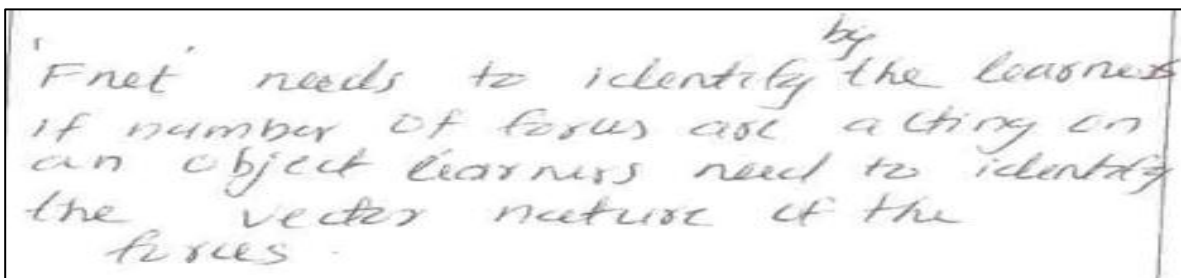 'Fnet' needs to identify by the learners
if number of forces are acting on
an object learners need to identify
the vector nature of the
forces.